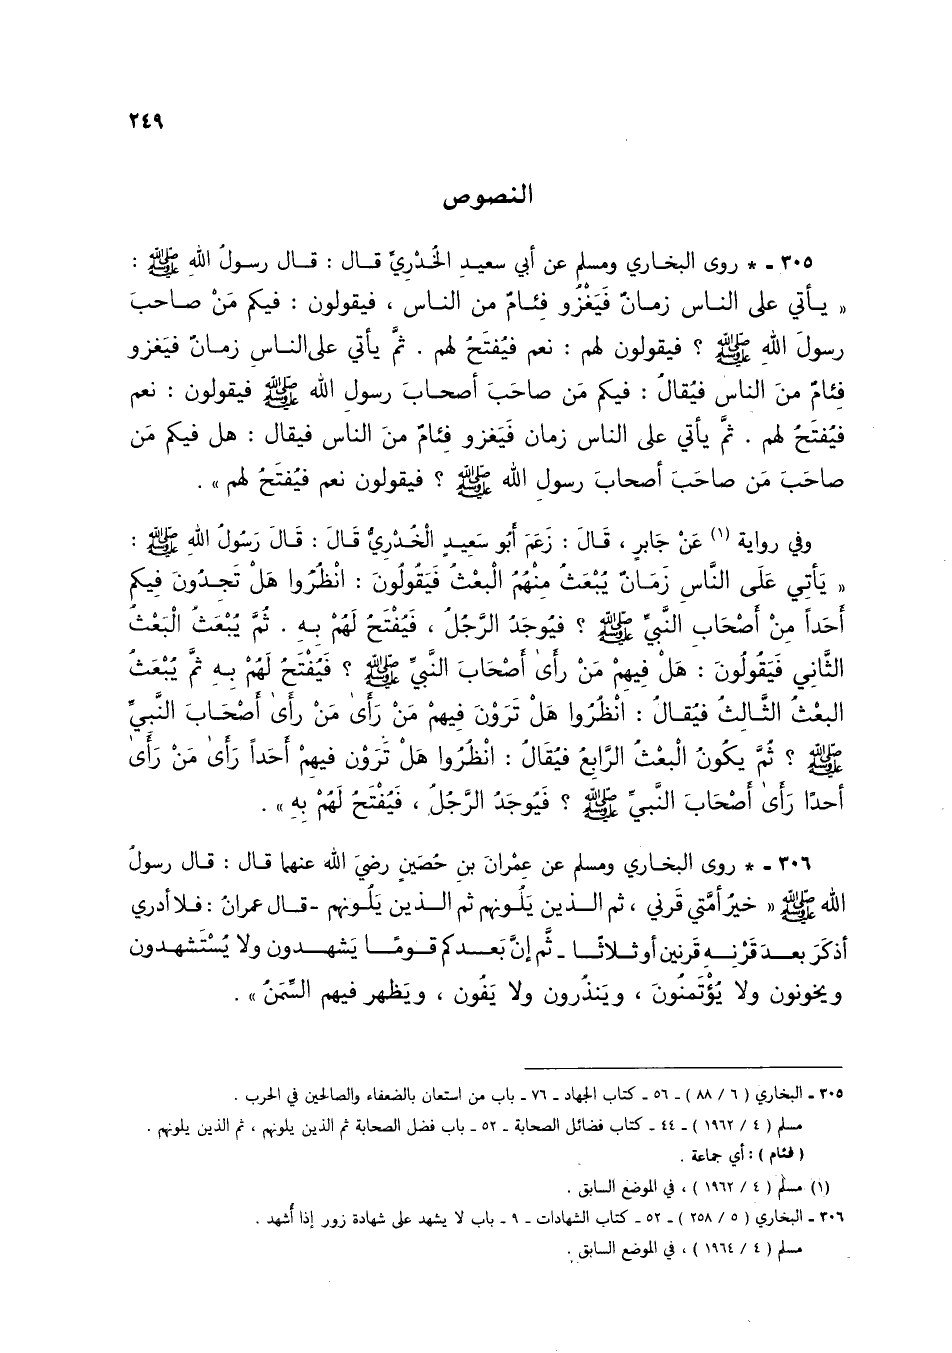 ٢٤٩
النصوص
٣٠٥ - * روى البخاري ومسلم عن أبي سعيدٍ الخُدْريِّ قال : قال رسولُ اللهِ ﷺ :
« يأتي على الناس زمانٌ فَيَغْزُو فئامٌ من الناس ، فيقولون : فيكم مَنْ صاحبَ
رسولَ اللهِ ﷺ ؟ فيقولون لهم : نعم فيُفتَحُ لهم . ثمَّ يأتي على الناسِ زمانٌ فيَغزو
فئامٌ منَ الناس فيُقالُ : فيكم مَن صاحَبَ أصحابَ رسول الله ﷺ فيقولون : نعم
فيُفتَحُ لهم . ثمَّ يأتي على الناس زمان فَيَغزو فئامٌ منَ الناس فيقال : هل فيكم مَن
صاحَبَ مَن صاحَبَ أصحابَ رسول الله ﷺ ؟ فيقولون نعم فيُفتَحُ لهم » .
وفي رواية (١) عَنْ جَابرٍ ، قَالَ : زَعَمَ أَبُو سَعِيدٍ الْخُدْرِيُّ قَالَ : قَالَ رَسُولُ اللهِ ﷺ :
« يَأْتِي عَلَى النَّاسِ زَمَانٌ يُبْعَثُ مِنْهُمُ الْبعْثُ فَيَقُولُونَ : انْظُرُوا هَلْ تَجِدُونَ فِيكم
أَحَداً مِنْ أَصْحَابِ النَّبيِّ ﷺ ؟ فيُوجَدُ الرَّجُلُ ، فَيُفْتَحُ لَهُمْ بِهِ . ثُمَّ يُبْعَثُ الْبَعْثُ
الثَّانِي فَيَقُولُونَ : هَلْ فِيهمْ مَنْ رَأَى أَصْحَابَ النَّبيِّ ﷺ ؟ فَيُفْتَحُ لَهُمْ بِهِ ثمَّ يُبْعَثُ
البعْثُ الثَّالِثُ فيُقالُ : انْظُرُوا هَلْ تَرَوْنَ فِيهمْ مَنْ رَأَى مَنْ رَأَى أَصْحَابَ النَّبيِّ
ﷺ ؟ ثُمَّ يكُونُ الْبعْثُ الرَّابعُ فيُقَالُ : انْظُرُوا هَلْ تَرَوْن فيهمْ أَحَداً رَأَى مَنْ رَأَى
أحدًا رَأَى أَصْحَابَ النَّبيِّ ﷺ ؟ فَيُوجَدُ الرَّجُلُ ، فَيُفْتَحُ لَهُمْ بِهِ » .
٣٠٦ - * روى البخاري ومسلم عن عِمْرانَ بنِ حُصَينٍ رضيَ الله عنهما قال : قال رسولُ
الله ﷺ « خيرُ أمَّتي قَرني ، ثم الذين يَلُونهم ثم الذين يَلُونهم - قال عمرانُ : فلا أدري
أذكَرَ بعدَ قَرْنِهِ قرنين أو ثلاثًا - ثمَّ إنَّ بَعدكم قومًا يَشهدون ولا يُسْتَشهدون
ويخونون ولا يُؤْتَمنُونَ ، ويَنذُرون ولا يَفُون ، ويَظهر فيهم السِّمَنُ » .
٣٠٥ - البخاري ( ٦ / ٨٨ ) - ٥٦ - كتاب الجهاد - ٧٦ - باب من استعان بالضعفاء والصالحين في الحرب .
مسلم ( ٤ / ١٩٦٢ ) - ٤٤ - كتاب فضائل الصحابة - ٥٢ - باب فضل الصحابة ثم الذين يلونهم ، ثم الذين يلونهم .
( فئام ) : أي جماعة .
(١) مسلم ( ٤ / ١٩٦٢ ) ، في الموضع السابق .
٣٠٦ - البخاري ( ٥ / ٢٥٨ ) - ٥٢ - كتاب الشهادات - ٩ - باب لا يشهد على شهادة زور إذا أُشهد .
مسلم ( ٤ / ١٩٦٤ ) ، في الموضع السابق .